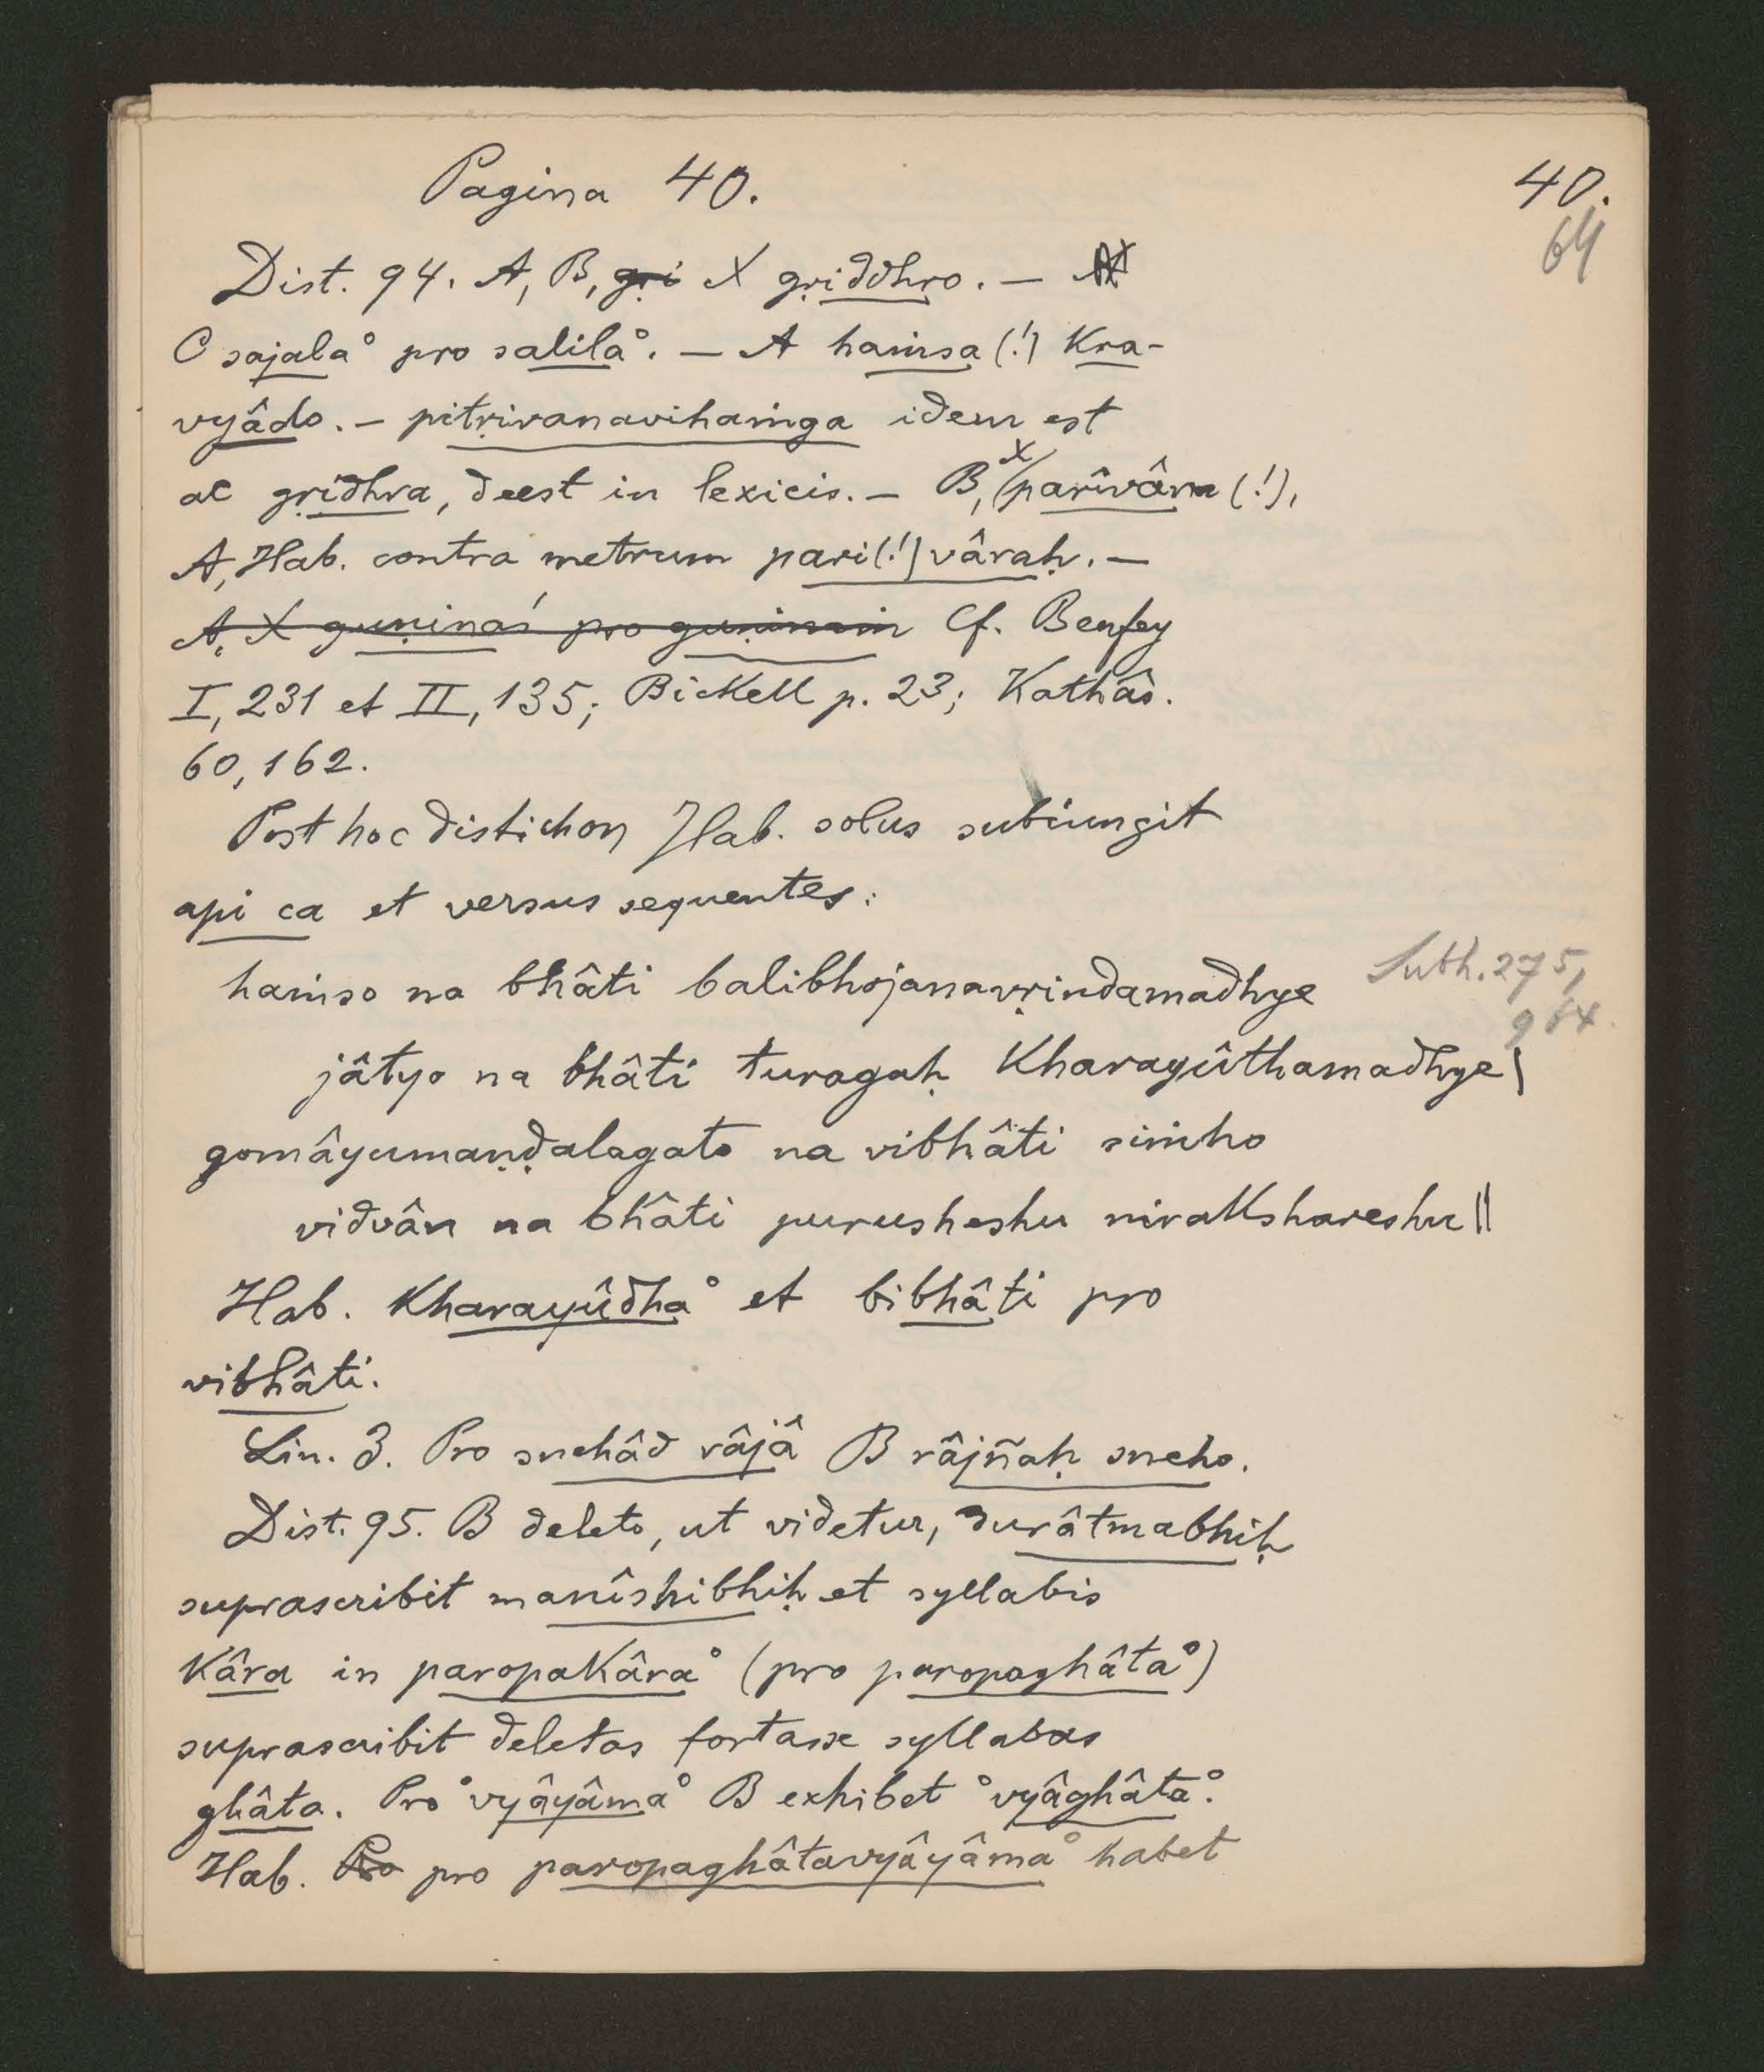 Pagina 40.
40.
64
Dist. 94. A, B, gṛi X gṛiddhro. —
C sajala° pro salila°. — A haṁsa (!) kra-
vyâdo. — pitṛivanavihaṁga idem est
ac gṛidhra, deest in lexicis. — B, X parîvâra (!),
A, Hab. contra metrum pari(!)vâraḥ. —
A, X guṇinaś pro guṇinaṁ Cf. Benfey
I, 231 et II, 135; Bickell p. 23; Kathâs.
60, 162.
Post hoc distichon Hab. solus subiungit
api ca et versus sequentes:
haṁso na bhâti balibhojanavṛindamadhye
Subh. 275,
964
jâtyo na bhâti turagaḥ kharayûthamadhye |
gomâyumaṇḍalagato na vibhâti siṁho
vidvân na bhâti purusheshu niraksharesbu ||
Hab. kharayûdha° et bibhâti pro
vibhâti.
Lin. 3. Pro snehâd râjâ B râjñaḥ sneho.
Dist. 95. B deleto, ut videtur, durâtmabhiḥ
suprascribit manîshibhiḥ et syllabis
kâra in paropakâra° (pro paropaghâta°)
suprascribit deletas fortasse syllabas
ghâta. Pro °vyâyâma° B exhibet °vyâghâta°.
Hab. Pro pro paropaghâtavyâyâma° habet